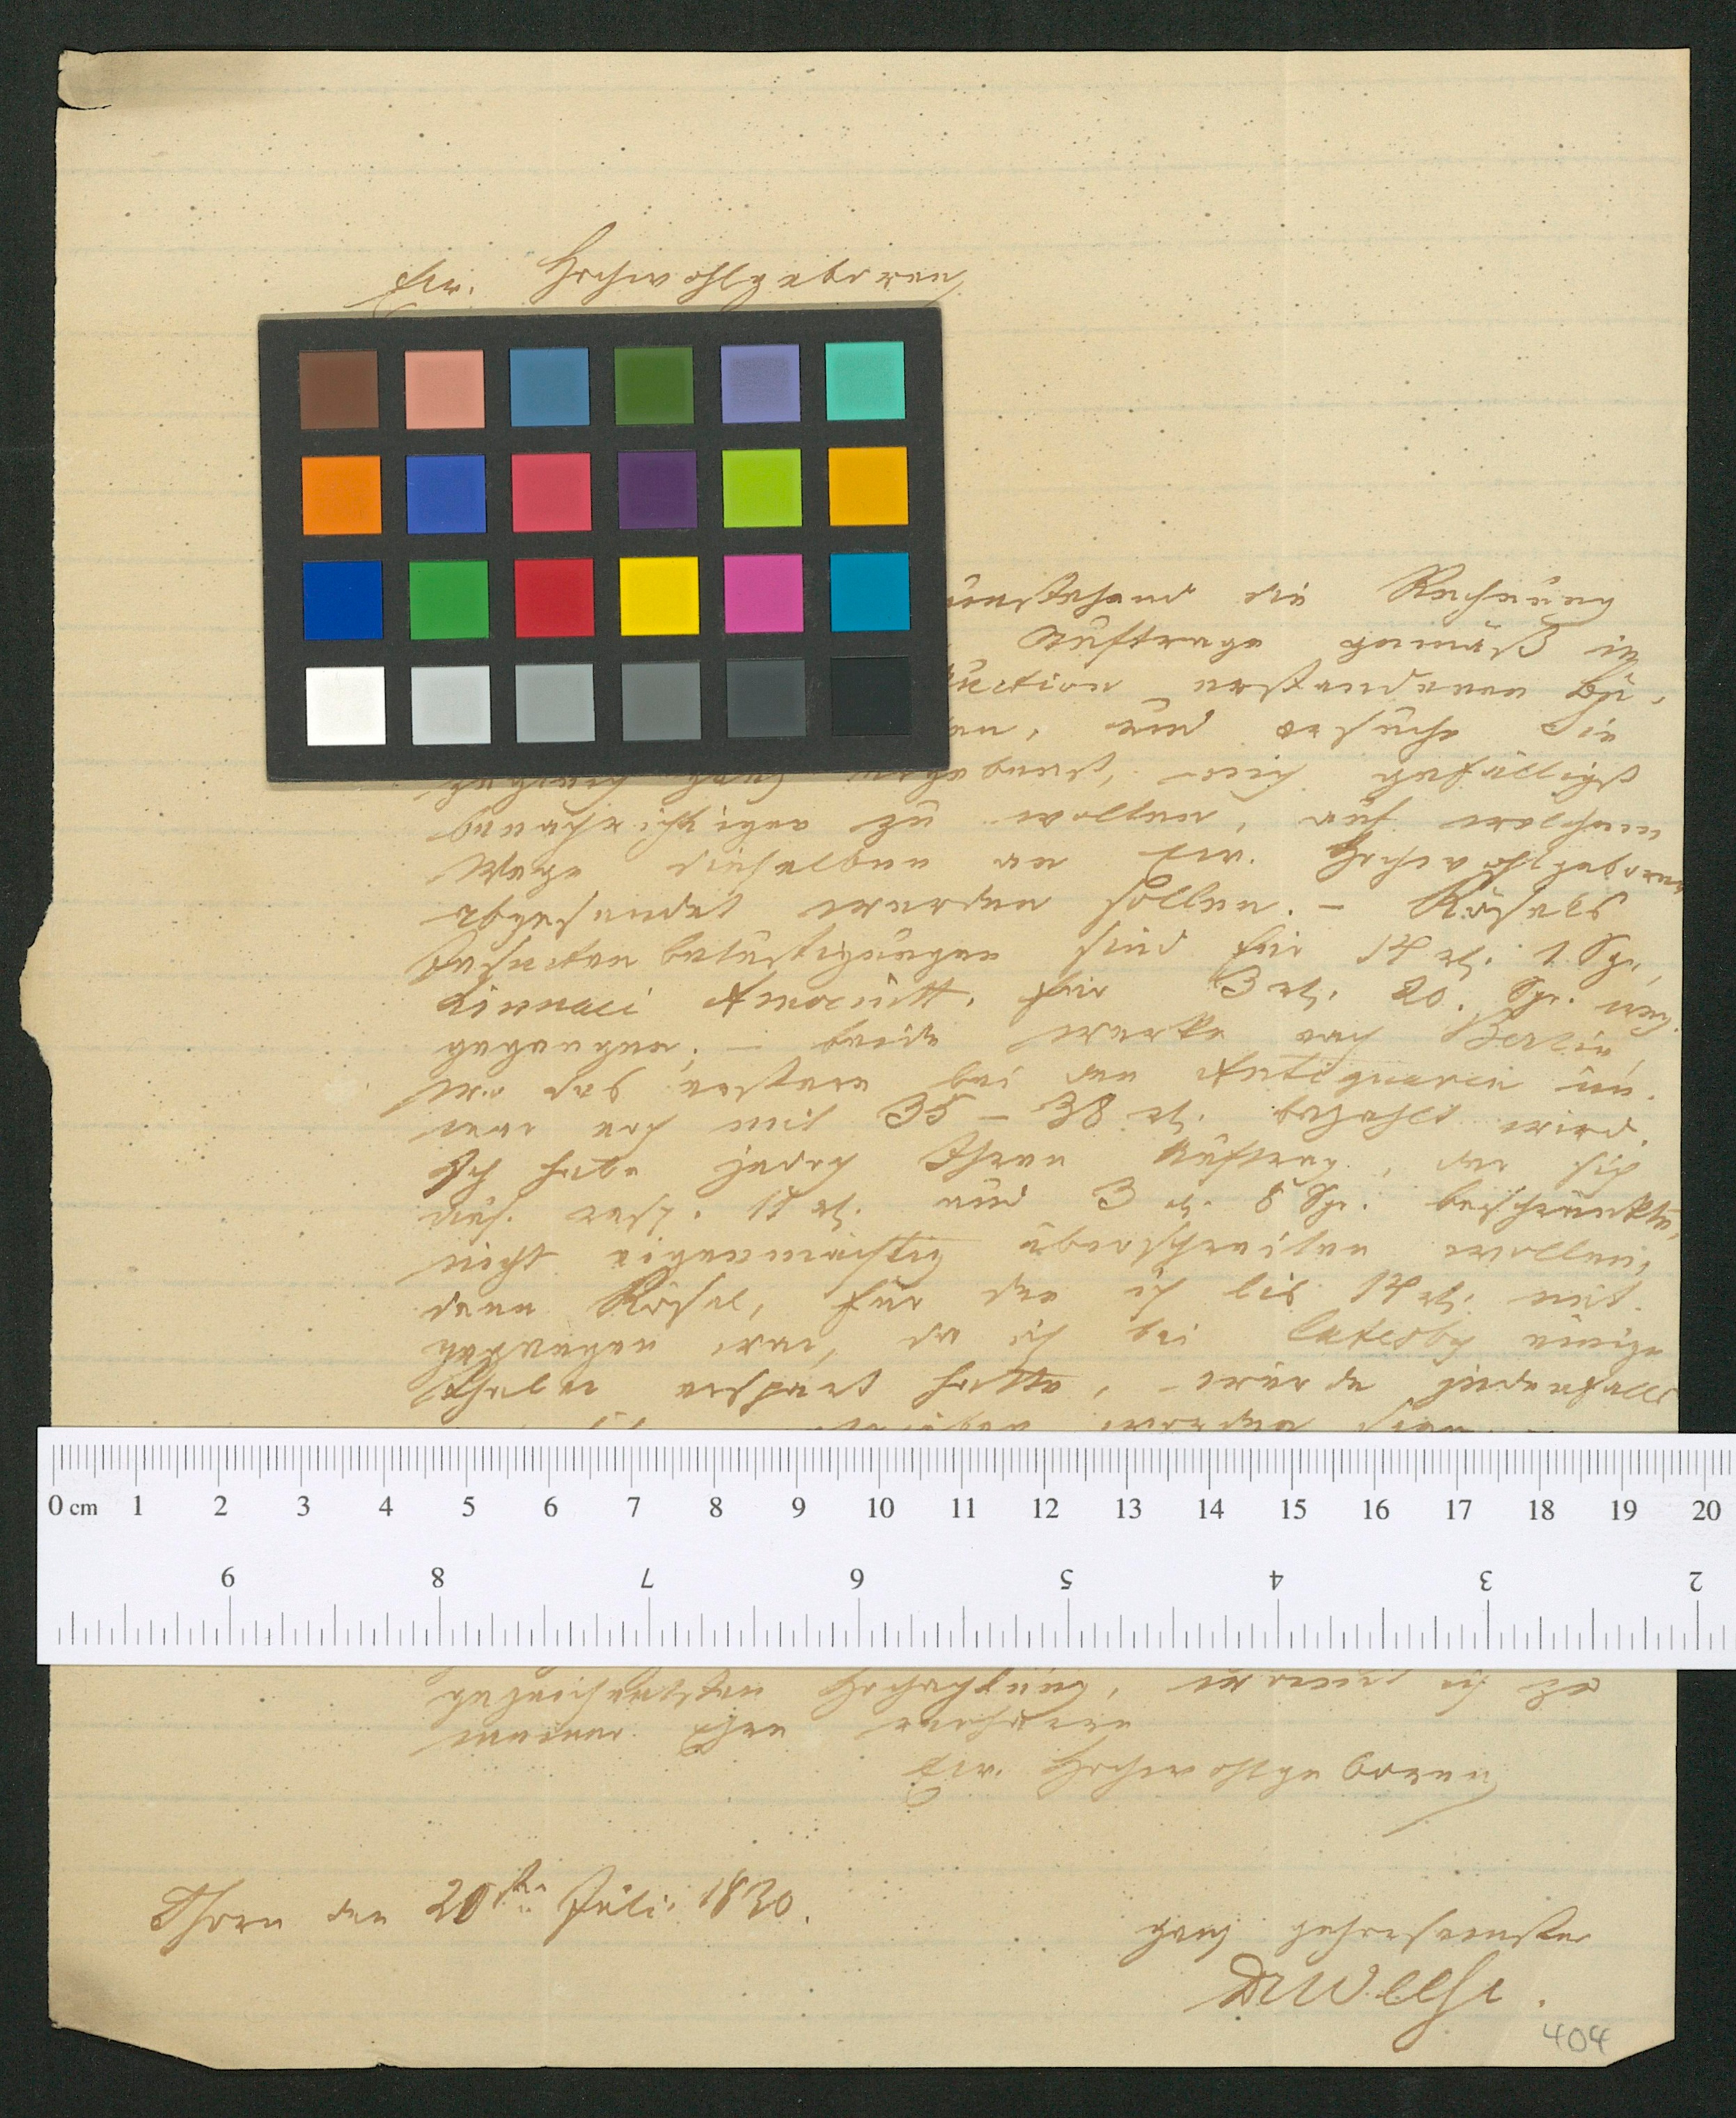 Ew. Hochwohlgeboren
umstehend die Rechnung
Auftrage gemäß in
uction erstandenen Bü-
en, und ersuche Sie
ganz ergebenst, mich gefälligst
benachrichtigen zu wollen, auf welchem
Wege dieselben an Ew. Hochwohlgeboren
abgesendet werden sollen. – Rösels
Insectenbelustigungen sind für 14 rt. 1 Sgr.
Linnaei Amoenitt. für 3 rt. 20. Sgr. weg
gegangen; – beide Werke nach Berlin,
wo das erstere bei den Antiquaren im-
mer noch mit 35 – 38 rt. bezahlt wird.
Ich habe jedoch Ihren Auftrag, der sich
auf resp. 11 rt. und 3 rt. 8 Sgr. beschränkte,
nicht eigenmächtig überschreiten wollen,
denn Rösel, für den ich bis 14 rt. mit-
gegangen war, da ich bei Catesby einige
Thaler erspart hatte, würde jedenfalls
worden sein
gezeichnetsten Hochachtung, womit ich es
meiner Ehre
Ew. Hochwohlgeboren
Thorn den 20sten Juli 1830.
ganz gehorsamster
Dr Weese.
404
0 cm 1 2 3 4 5 6 7 8 9 10 11 12 13 14 15 16 17 18 19 20
9 8 7 6 5 4 3 2